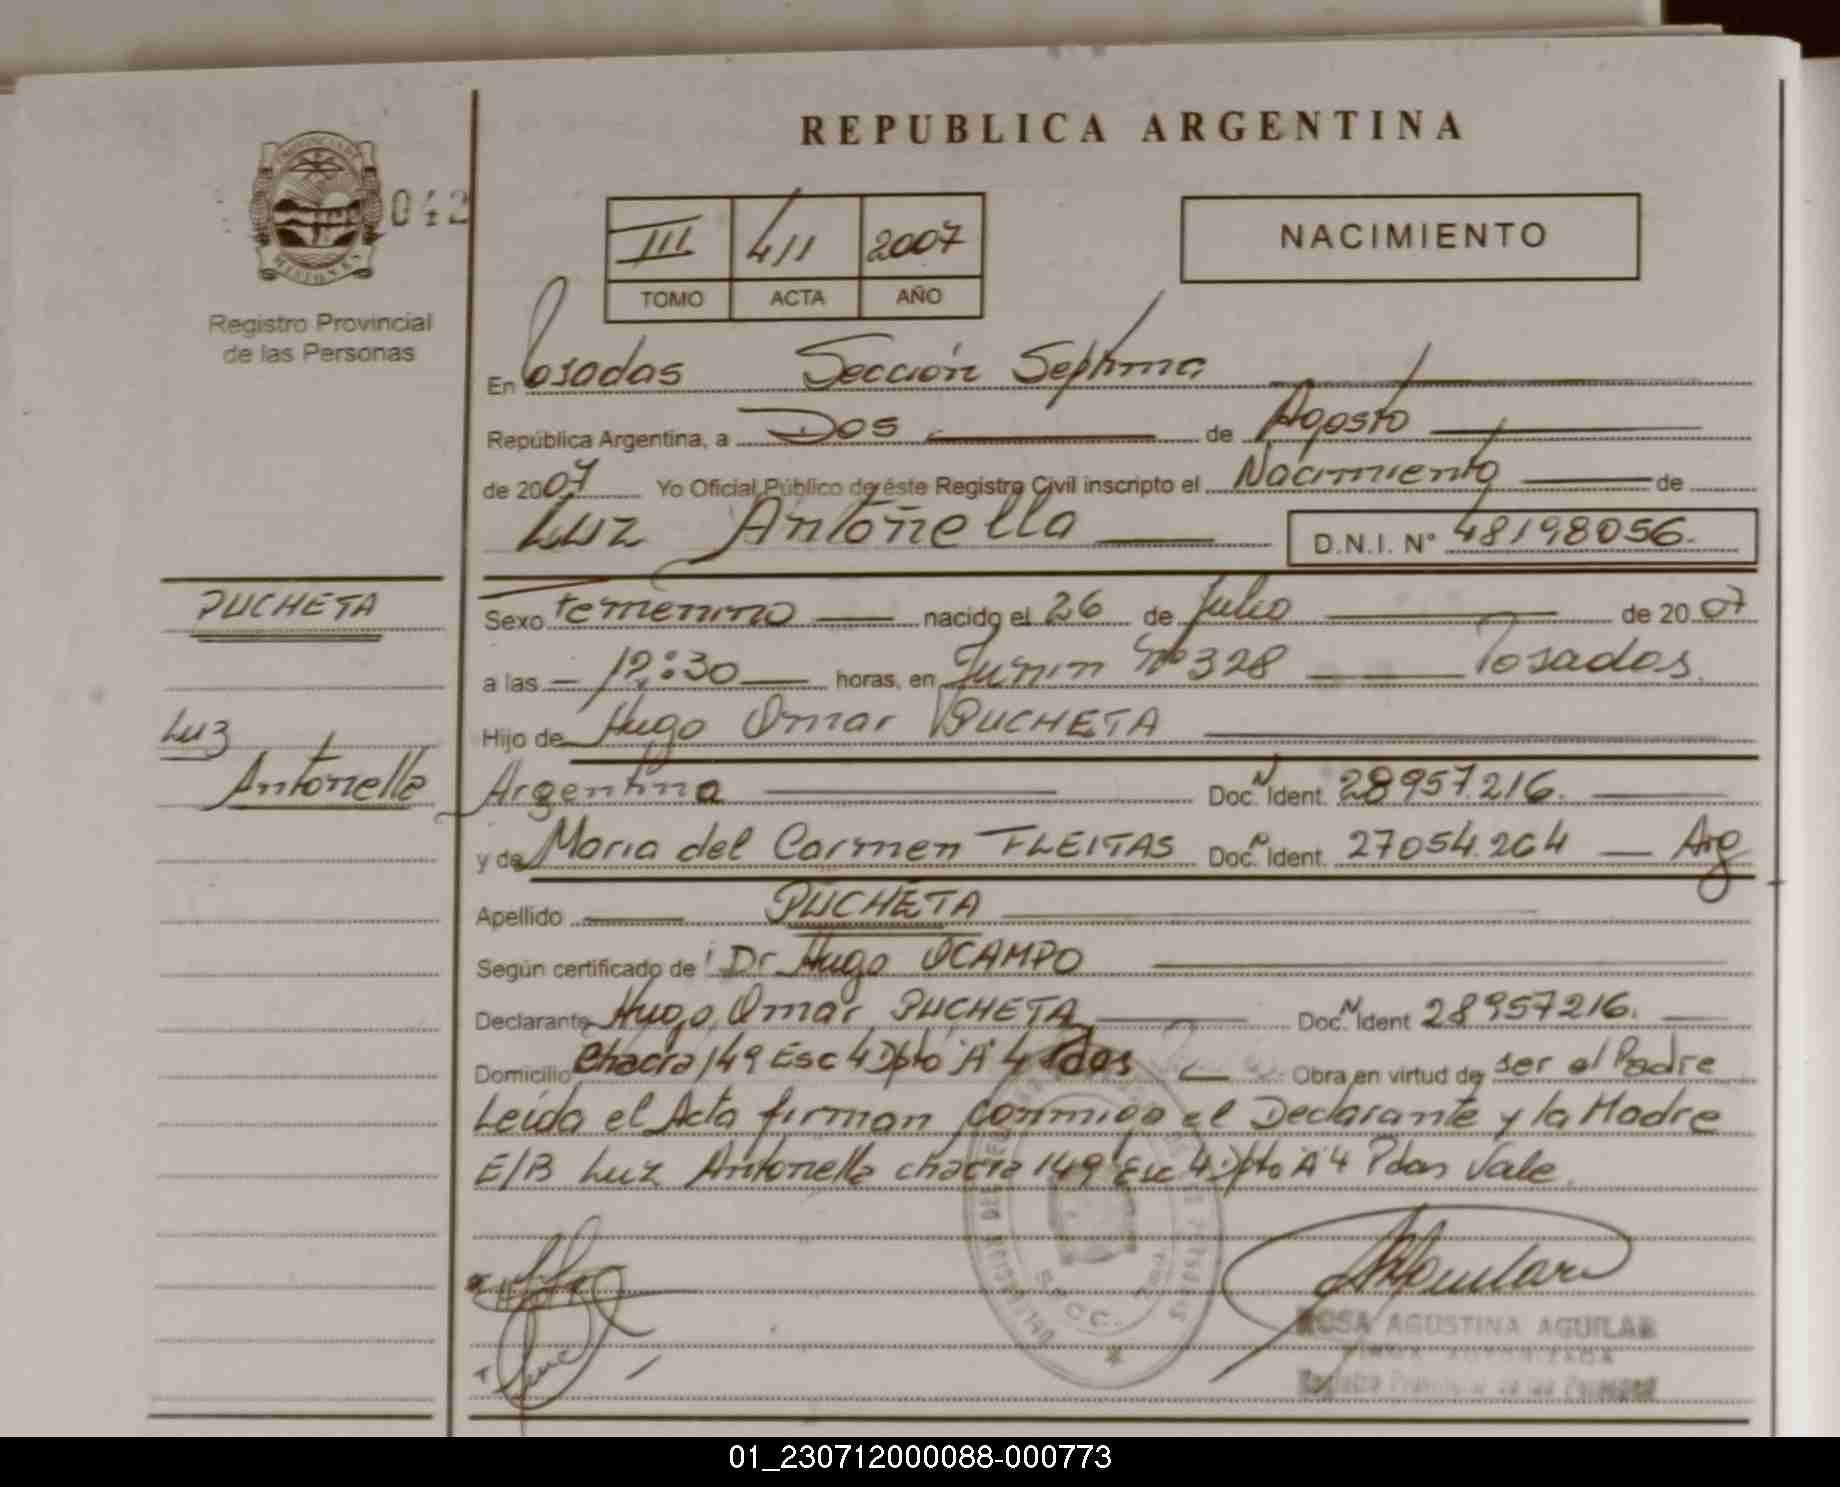 REPUBLICA ARGENTINA
042
MISIONES
Registro Provincial
de las Personas
III 411 2007
TOMO ACTA AÑO
NACIMIENTO
En Posadas Sección Septima
República Argentina, a Dos de Agosto
de 2007 Yo Oficial Público de éste Registro Civil inscripto el Nacimiento de
Luz Antonella D.N.I. N° 48198056.
PUCHETA
Luz
Antonella
Sexo femenino nacido el 26 de Julio de 2007
a las 12:30 horas, en Junin Nº 328 Posadas.
Hijo de Hugo Omar PUCHETA
Argentina Doc. N Ident. 28957.216.
y de Maria del Carmen FLEITAS Doc. N Ident. 27054.264 Arg
Apellido PUCHETA
Según certificado de Dr Hugo OCAMPO
Declarante Hugo Omar PUCHETA Doc. N Ident 28957216.
Domicilio Chacra 149 Esc 4 Dpto "A" 4 Pdas Obra en virtud de ser el Padre
Leida el Acta firman conmigo el Declarante y la Madre
E/B Luz Antonella chacra 149 Esc 4 Dpto A 4 Pdas Vale.
ROSA AGUSTINA AGUILAR
FIRMA AUTORIZADA
Registro Provincial de las Personas
01_230712000088-000773